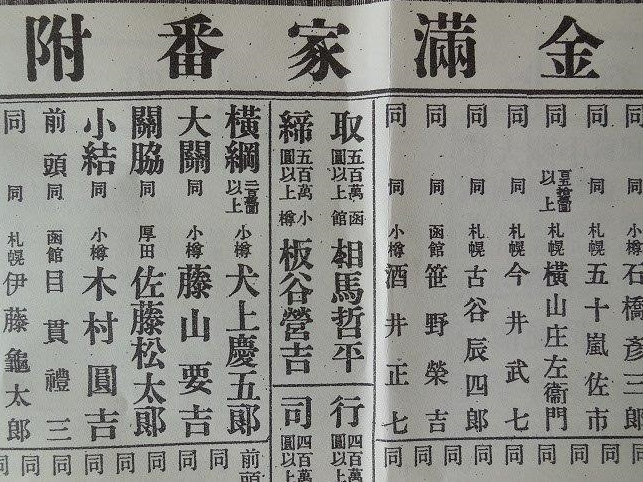 金滿家番附
同 小樽 石橋彥三郎
同 札幌 五十嵐佐市
同 以上 札幌 橫山庄左衞門
同 同 札幌 今井武七
同 同 札幌 古谷辰四郎
同 同 函館 笹野榮吉
同 同 小樽 酒井正七
取 五百萬圓以上 函館 相馬哲平
締 五百萬圓以上 小樽 板谷營吉
行 四百萬圓以上
司 四百萬圓以上
橫綱 以上 小樽 犬上慶五郎
大關 同 小樽 藤山要吉
關脇 同 厚田 佐藤松太郎
小結 同 小樽 木村圓吉
前頭 同 函館 目貫禮三
同 同 札幌 伊藤龜太郎
同 同 同 同 同 同 同
前頭 同 同 同 同 同 同 同 同